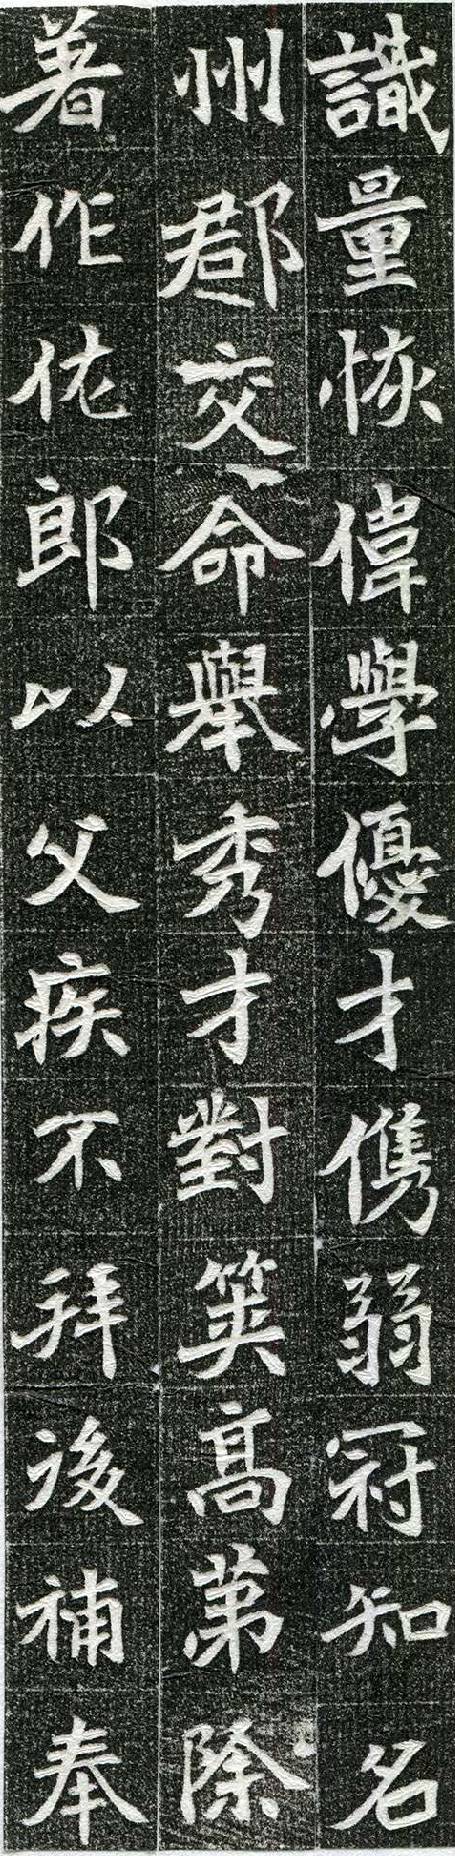 識量恢偉學優才儁弱冠知名
州郡交命舉秀才對筞高第除
著作佐郎以父疾不拜後補奉